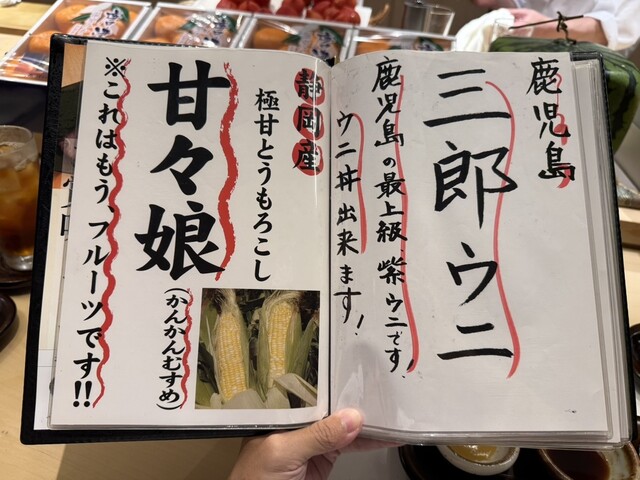 鹿児島
三郎ウニ
鹿児島の最上級、紫ウニです!
ウニ丼出来ます!
静岡産
極甘とうもろこし
甘々娘
(かんかんむすめ)
※これはもう、フルーツです!!